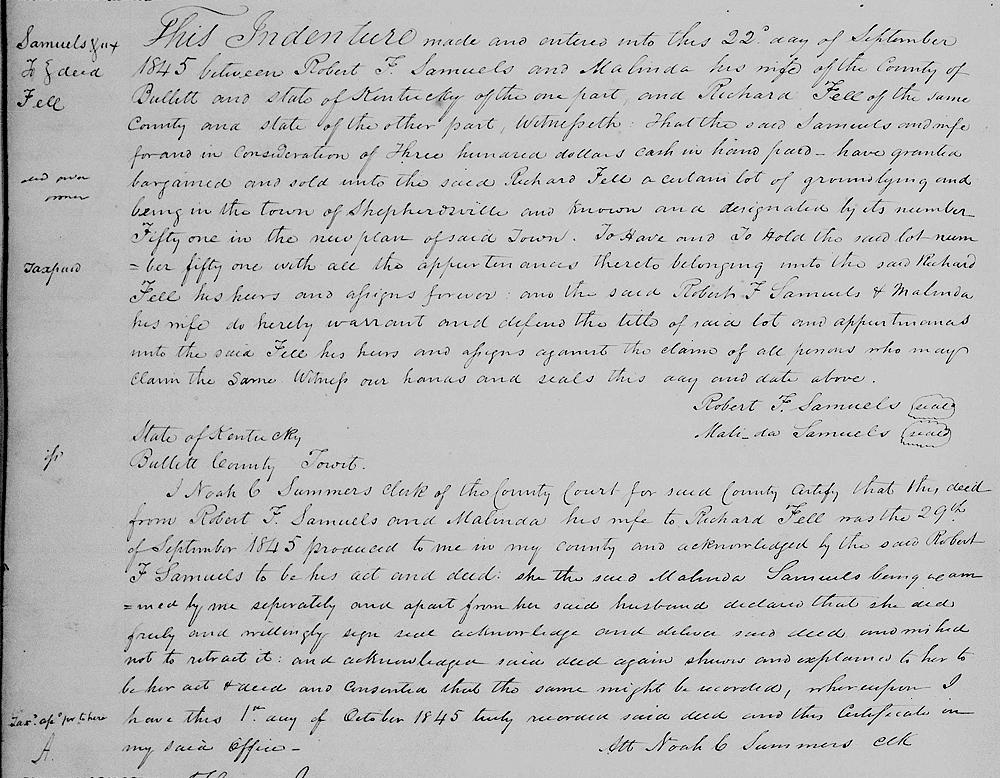 Samuels & ux
To } deed
Fell
This Indenture made and entered into this 22d day of September
1845 between Robert F. Samuels and Malinda his wife of the County of
Bullitt and state of Kentucky of the one part, and Richard Fell of the same
County and state of the other part, Witnesseth: That the said Samuels and wife
for and in consideration of Three hundred dollars cash in hand paid – have granted
bargained and sold unto the said Richard Fell a certain lot of ground lying and
being in the town of Shepherdsville and known and designated by its number
Fifty one in the new plan of said Town. To Have and To Hold the said lot num
=ber fifty one with all the appurtenances thereto belonging unto the said Richard
Fell his heirs and assigns forever: and the said Robert F Samuels & Malinda
his wife do hereby warrant and defend the title of said lot and appurtenances
unto the said Fell his heirs and assigns against the claim of all persons who may
claim the same Witness our hands and seals this day and date above.
Robert F. Samuels (seal)
Malinda Samuels (seal)
owner
Tax paid
State of Kentucky
Bullitt County Towit.
I Noah C Summers clerk of the County Court for said County certify that this deed
from Robert F. Samuels and Malinda his wife to Richard Fell was the 29th
of September 1845 produced to me in my county and acknowledged by the said Robert
F Samuels to be his act and deed: she the said Malinda Samuels being exam
=ined by me seperately and apart from her said husband declared that she did
freely and willingly sign seal acknowledge and deliver said deed and wished
not to retract it: and acknowledged said deed again shewn and explained to her to
be her act & deed and consented that the same might be recorded, whereupon I
have this 1st day of October 1845 truly recorded said deed and this Certificate in
my said office –
Att Noah C Summers clk